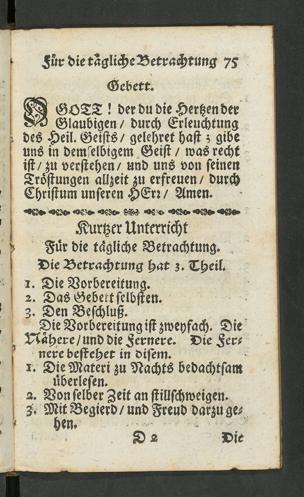 Für die tägliche Betrachtung 75
Gebett.
O GOTT! der du die Hertzen der
Glaubigen / durch Erleuchtung
des Heil. Geists / gelehret hast; gibe
uns in demselbigem Geist / was recht
ist / zu verstehen / und uns von seinen
Tröstungen allzeit zu erfreuen / durch
Christum unseren HErz / Amen.
Kurtzer Unterricht
Für die tägliche Betrachtung.
Die Betrachtung hat 3. Theil.
1. Die Vorbereitung.
2. Das Gebett selbsten.
3. Den Beschluß.
Die Vorbereitung ist zweyfach. Die
Nähere / und die Fernere. Die Fer-
nere bestehet in disem.
1. Die Materi zu Nachts bedachtsam
überlesen.
2. Von selber Zeit an stillschweigen.
3. Mit Begierd / und Freud darzu ge-
hen.
D 2 Die